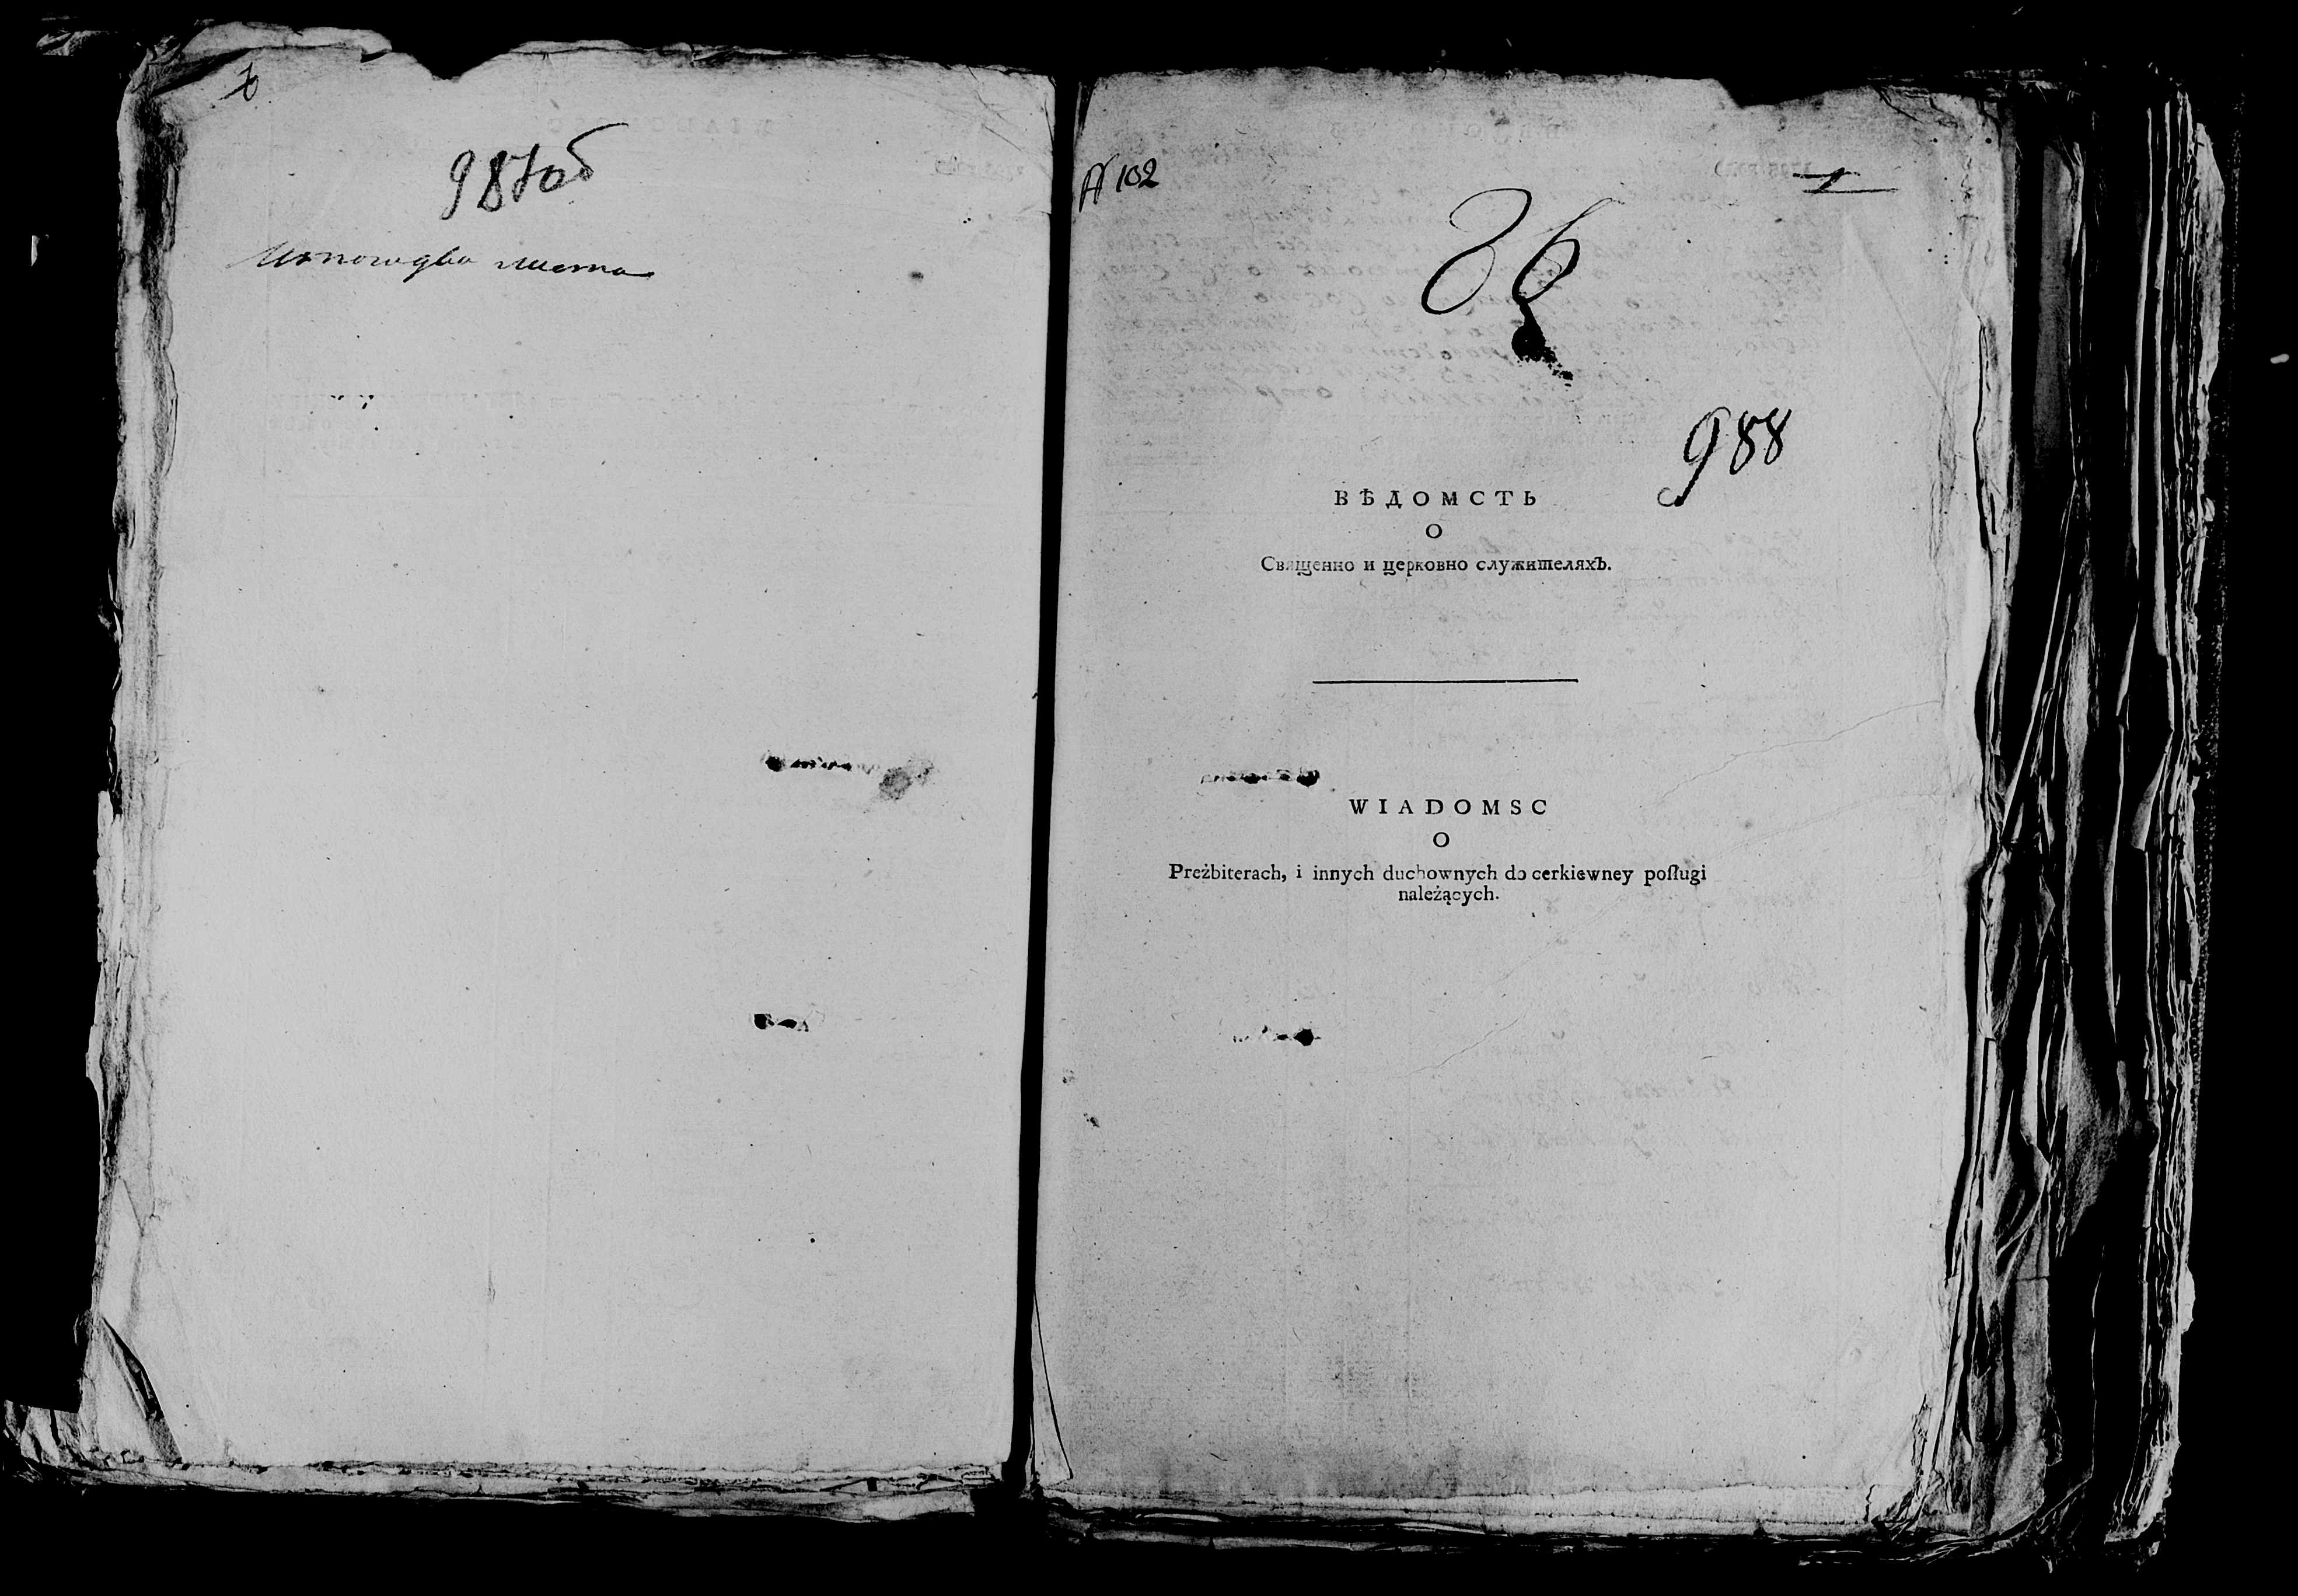 987об
листа
N 102
1
36
988
ВѢДОМСТЬ
О
Священно и церковно служителяхЪ.
WIADOMSC
O
Preżbiterach, i innych duchownych do cerkiewney poſługi
należących.